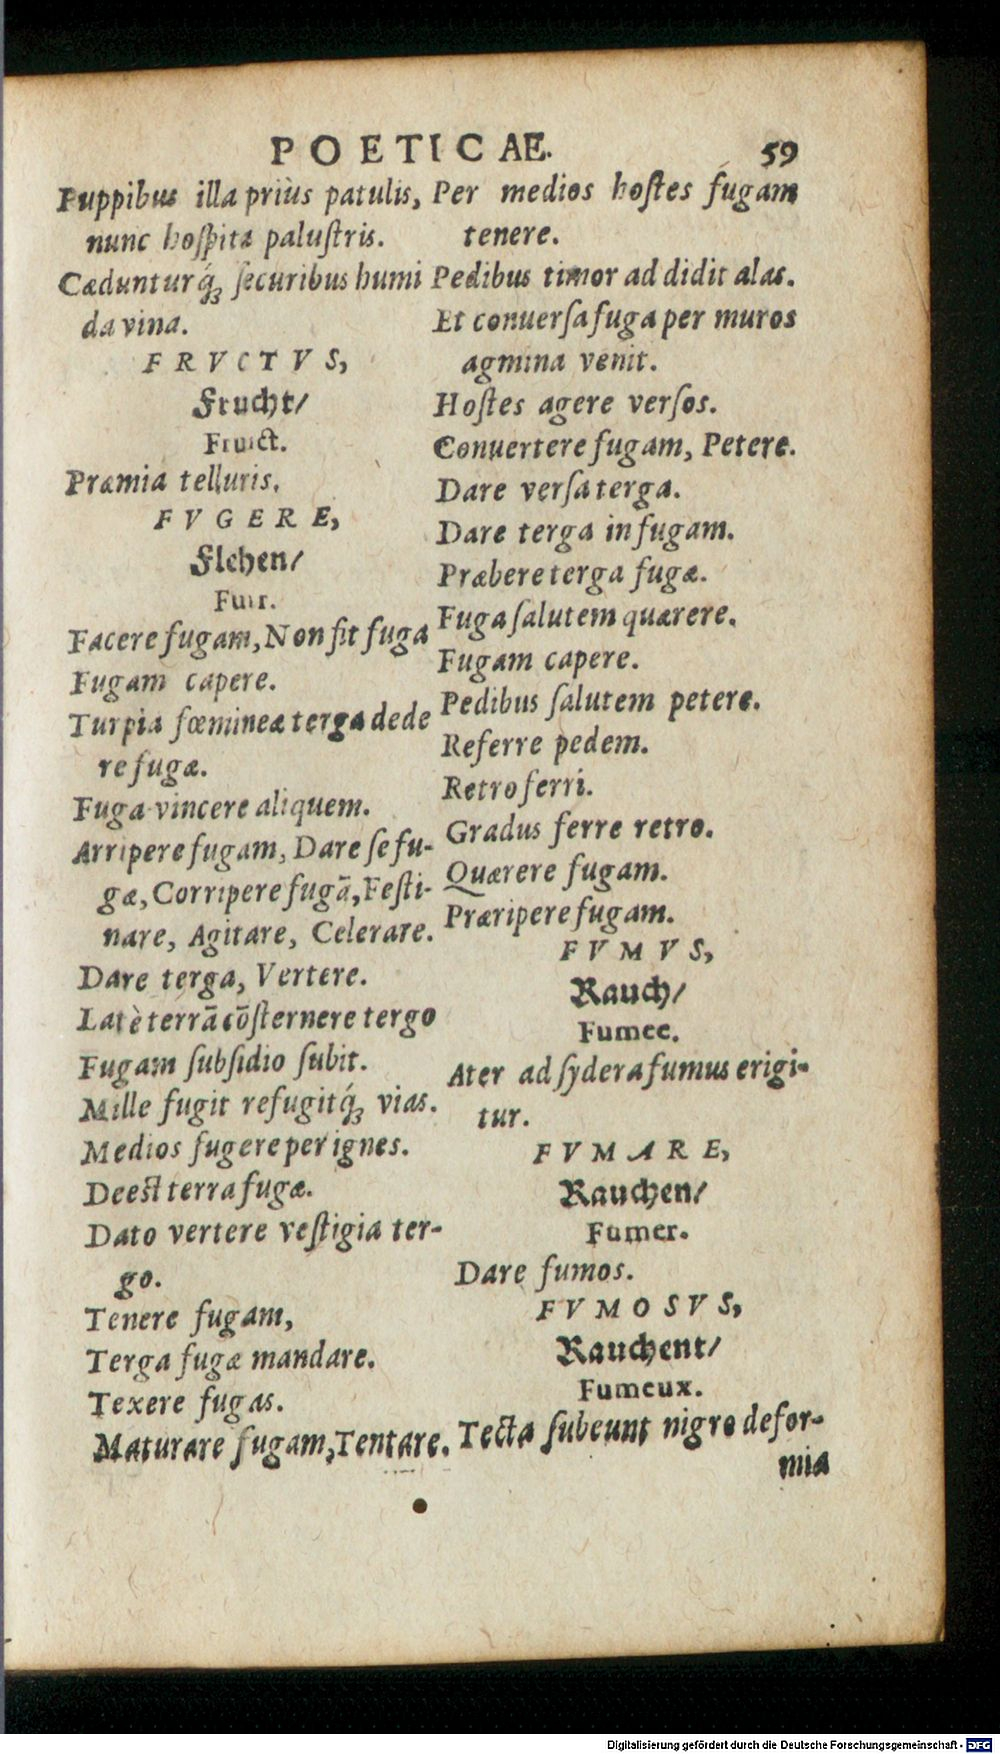 POETICAE.
59
Puppibus illa priùs patulis,
nunc hoſpita paluſtris.
Cæduntur q́; ſecuribus humi
da vina.
FRVCTVS,
Frucht/
Fruict.
Præmia telluris.
FVGERE,
Flehen/
Fuir.
Facere fugam, Non fit fuga
Fugam capere.
Turpia fœmineæ terga dede
re fugæ.
Fuga vincere aliquem.
Arripere fugam, Dare ſe fu-
gæ, Corripere fugā, Feſti-
nare, Agitare, Celerare.
Dare terga, Vertere.
Latè terrā cōſternere tergo
Fugam ſubſidio ſubit.
Mille fugit refugitq́; vias.
Medios fugere per ignes.
Deest terra fugæ.
Dato vertere veſtigia ter-
go.
Tenere fugam,
Terga fugæ mandare.
Texere fugas.
Maturare fugam, Tentare.
Per medios hoſtes fugam
tenere.
Pedibus timor addidit alas.
Et conuerſa fuga per muros
agmina venit.
Hoſtes agere verſos.
Conuertere fugam, Petere.
Dare verſa terga.
Dare terga in fugam.
Præbere terga fugæ.
Fuga ſalutem quærere.
Fugam capere.
Pedibus ſalutem petere.
Referre pedem.
Retro ferri.
Gradus ferre retro.
Quærere fugam.
Præripere fugam.
FVMVS,
Rauch/
Fumee.
Ater ad ſydera fumus erigi-
tur.
FVMARE,
Rauchen/
Fumer.
Dare fumos.
FVMOSVS,
Rauchent/
Fumeux.
Tecta ſubeunt nigro defor-
mia
Digitalisierung gefördert durch die Deutsche Forschungsgemeinschaft - DFG